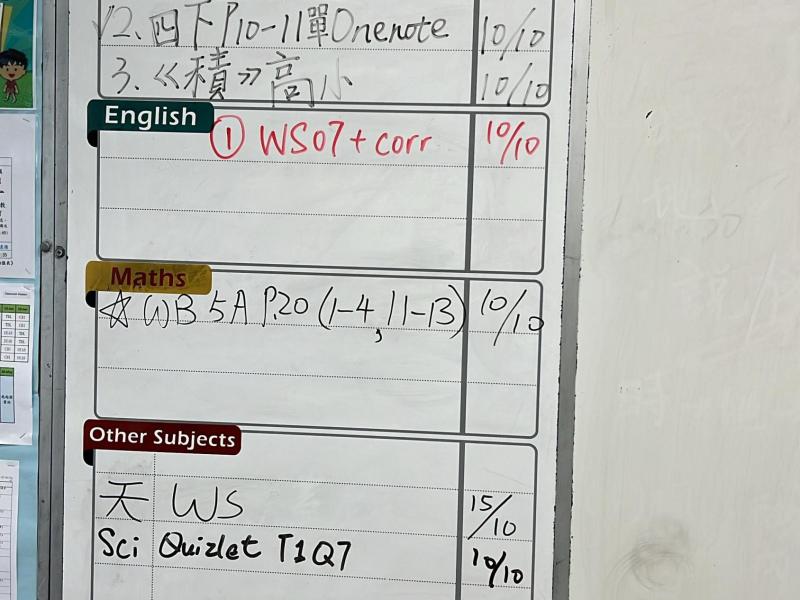 √2、四下P10-11單Onenote 10/10
3、《積》高小 10/10
English
① WS07 + corr 10/10
Maths
☆ WB 5A P.20 (1-4, 11-13) 10/10
Other Subjects
天 WS 15/10
Sci Quizlet T1Q7 10/10